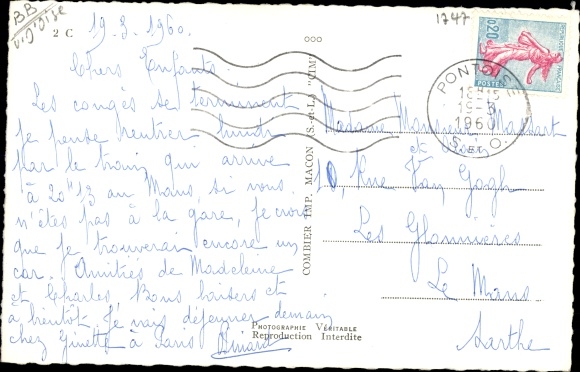 BB
2 C
19.8.1960.
Chers Enfants.
Les congés se terminent
je pense rentrer lundi
par le train qui arrive
à 20H 13 au Mans, si vous
n'êtes pas à la gare, je crois
que je trouverai encore un
car. Amitiés de Madeleine
et Charles, Bons baisers et
à bientôt. Je vais déjeuner demain
chez Ginette à Paris
1747
0,20
POSTES
PONTOISE
1960
S. & O.
Madame Massart
et
10, Rue Van Gogh
Les Glonnières
Le Mans
Sarthe
COMBIER IMP. MACON (S.-et-L.) "CIM"
PHOTOGRAPHIE VÉRITABLE
Reproduction Interdite